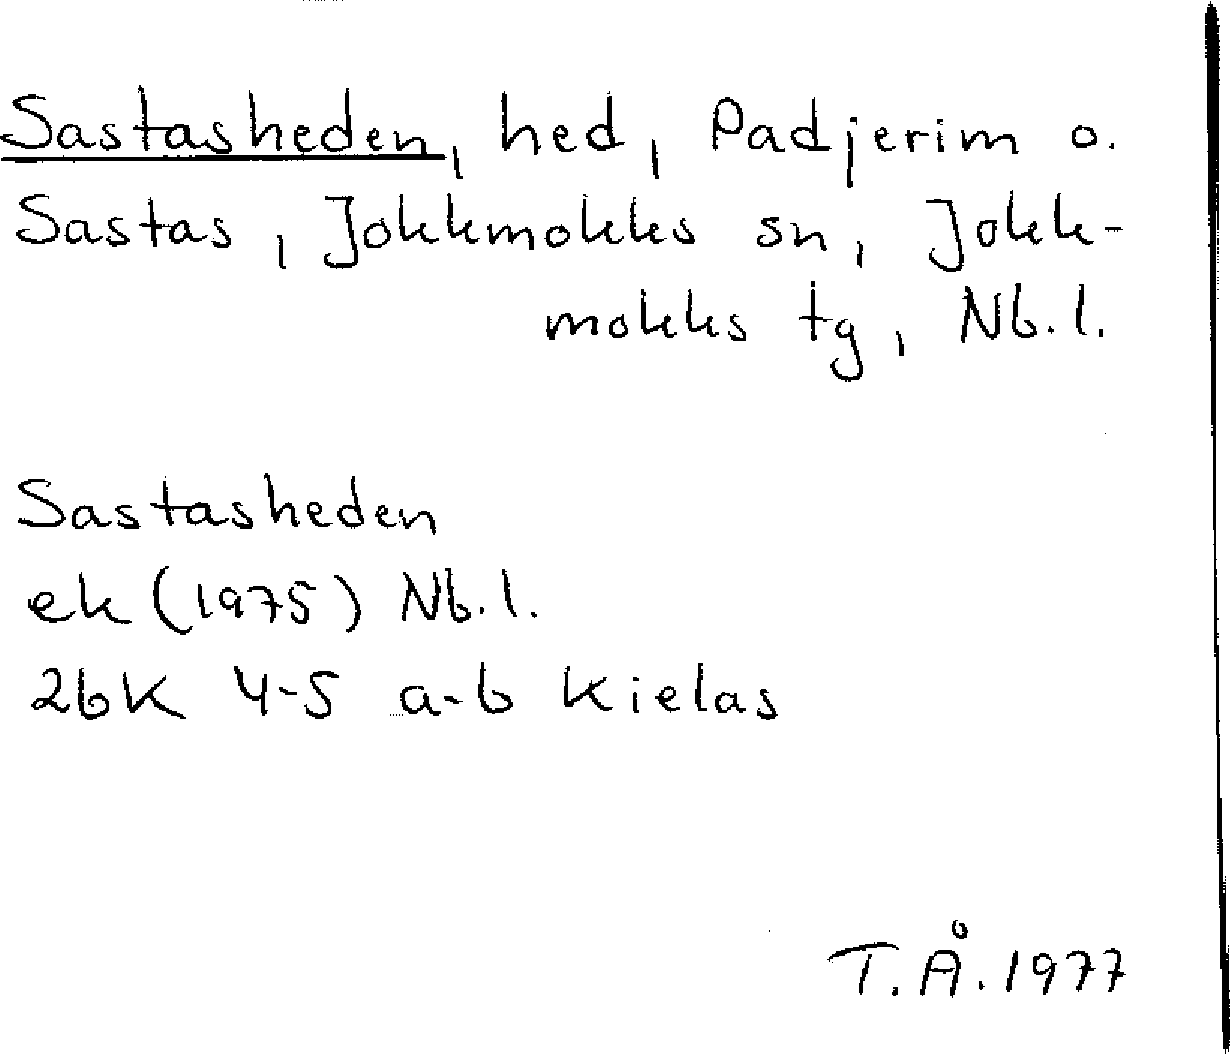 Sastasheden, hed, Padjerim o.
Sastas, Jokkmokks sn, Jokk-
mokks tg, Nb.l.
Sastasheden
ek (1975) Nb.l.
26K 4-5 a-b Kielas
T.Å.1977